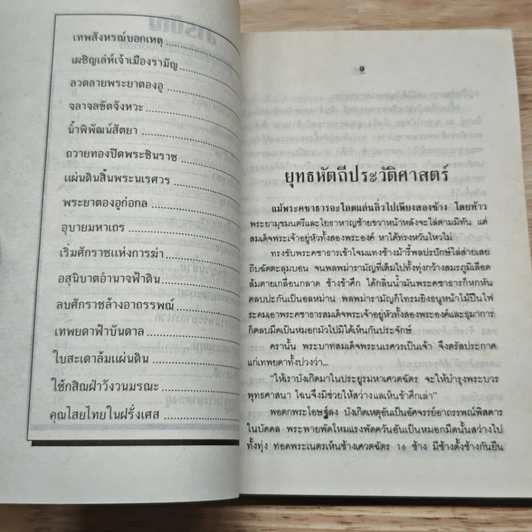 สารบัญ
เทพสังหรณ์บอกเหตุ
เผชิญเล่ห์เจ้าเมืองรามัญ
ลวดลายพระยาตองอู
จลาจลขัดจังหวะ
น้ำพิพัฒน์สัตยา
ถวายทองปิดพระชินราช
แผ่นดินสิ้นพระนเรศวร
พระยาตองอูก่อกล
อุบายมหาเถร
เริ่มศักราชแห่งการฆ่า
อสุนิบาตอำนาจฟ้าดิน
ลบศักราชล้างอาถรรพณ์
เทพยดาฟ้าบันดาล
ใบสะเดาล้มแผ่นดิน
ใช้กสิณฝ่าวังวนมรณะ
คุณไสยไทยในฝรั่งเศส
๑
ยุทธหัตถีประวัติศาสตร์
แม้พระคชาธารจะโลดแล่นลิ่วไปเพียงสองช้าง โดยท้าว
พระยามุขมนตรีและโยธาหาญซ้ายขวาหน้าหลังจะไล่ตามมิทัน แต่
สมเด็จพระเจ้าอยู่หัวทั้งสองพระองค์ หาได้ทรงหวั่นไหวไม่
ทรงขับพระคชาธารเข้าโจมแทงช้างม้ารี้พลปรปักษ์ไล่ส่ายเสย
ถีบฉัดตะลุมบอน จนพลพม่ารามัญที่เต็มไปทั้งทุ่งกว้างสมรภูมิเลือด
ล้มตายเกลื่อนกลาด ช้างข้าศึก ได้กลิ่นน้ำมันพระคชาธารก็หกหัน
ตลบปะกันเป็นอลหม่าน พลพม่ารามัญก็โทรมยิงธนูหน้าไม้ปืนไฟ
ระดมเอาพระคชาธารสมเด็จพระเจ้าอยู่หัวทั้งสองพระองค์และธุมาการ
ก็ตลบมืดเป็นหมอกมัวไปมิได้เห็นกันประจักษ์
ครานั้น พระบาทสมเด็จพระนเรศวรเป็นเจ้า จึงตรัสประกาศ
แก่เทพยดาทั้งปวงว่า...
"ให้เราบังเกิดมาในประยูรมหาเศวตฉัตร จะให้บำรุงพระบวร
พุทธศาสนา ไฉนจึงมิช่วยให้สว่างแลเห็นข้าศึกเล่า"
พอตกพระโอษฐ์ลง บังเกิดเหตุอันเป็นอัศจรรย์อาถรรพณ์พิสดาร
ในบัดดล พระพายพัดโหมแรงพัดควันอันเป็นหมอกมืดนั้นสว่างไป
ทั้งทุ่ง ทอดพระเนตรเห็นช้างเศวตฉัตร 16 ช้าง มีช้างดั้งช้างกันยืน